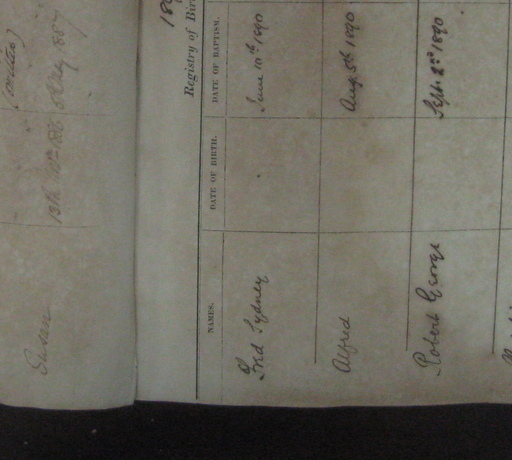 (omitted)
Susan
189
Registry of Bir
NAMES. DATE OF BIRTH. DATE OF BAPTISM.
Fred Sydney June 10th 1890
Alfred Aug. 5th 1890
Robert George Sept. 2nd 1890